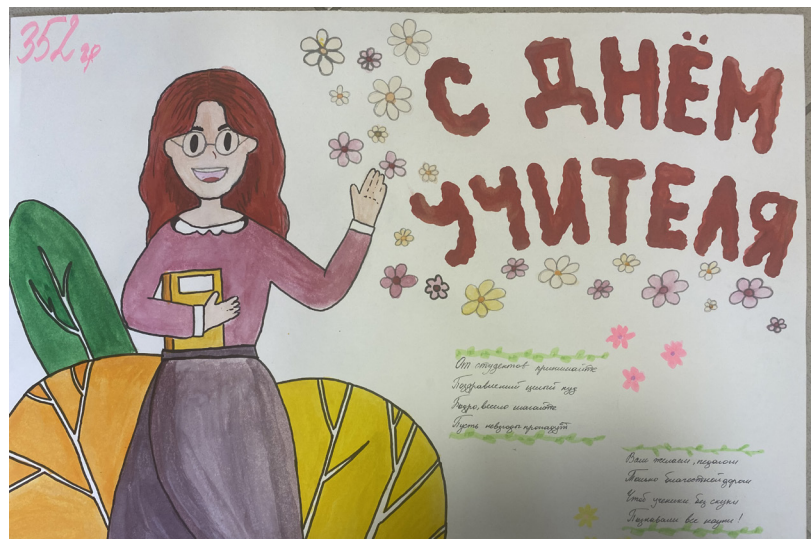 352 гр
С ДНЁМ
УЧИТЕЛЯ
От студентов принимайте
Поздравлений целый пуд
Бодро, весело шагайте
Пусть невзгоды пропадут
Вам желаем, педагоги
Только благостной дороги
Чтоб ученики без скуки
Познавали все науки!